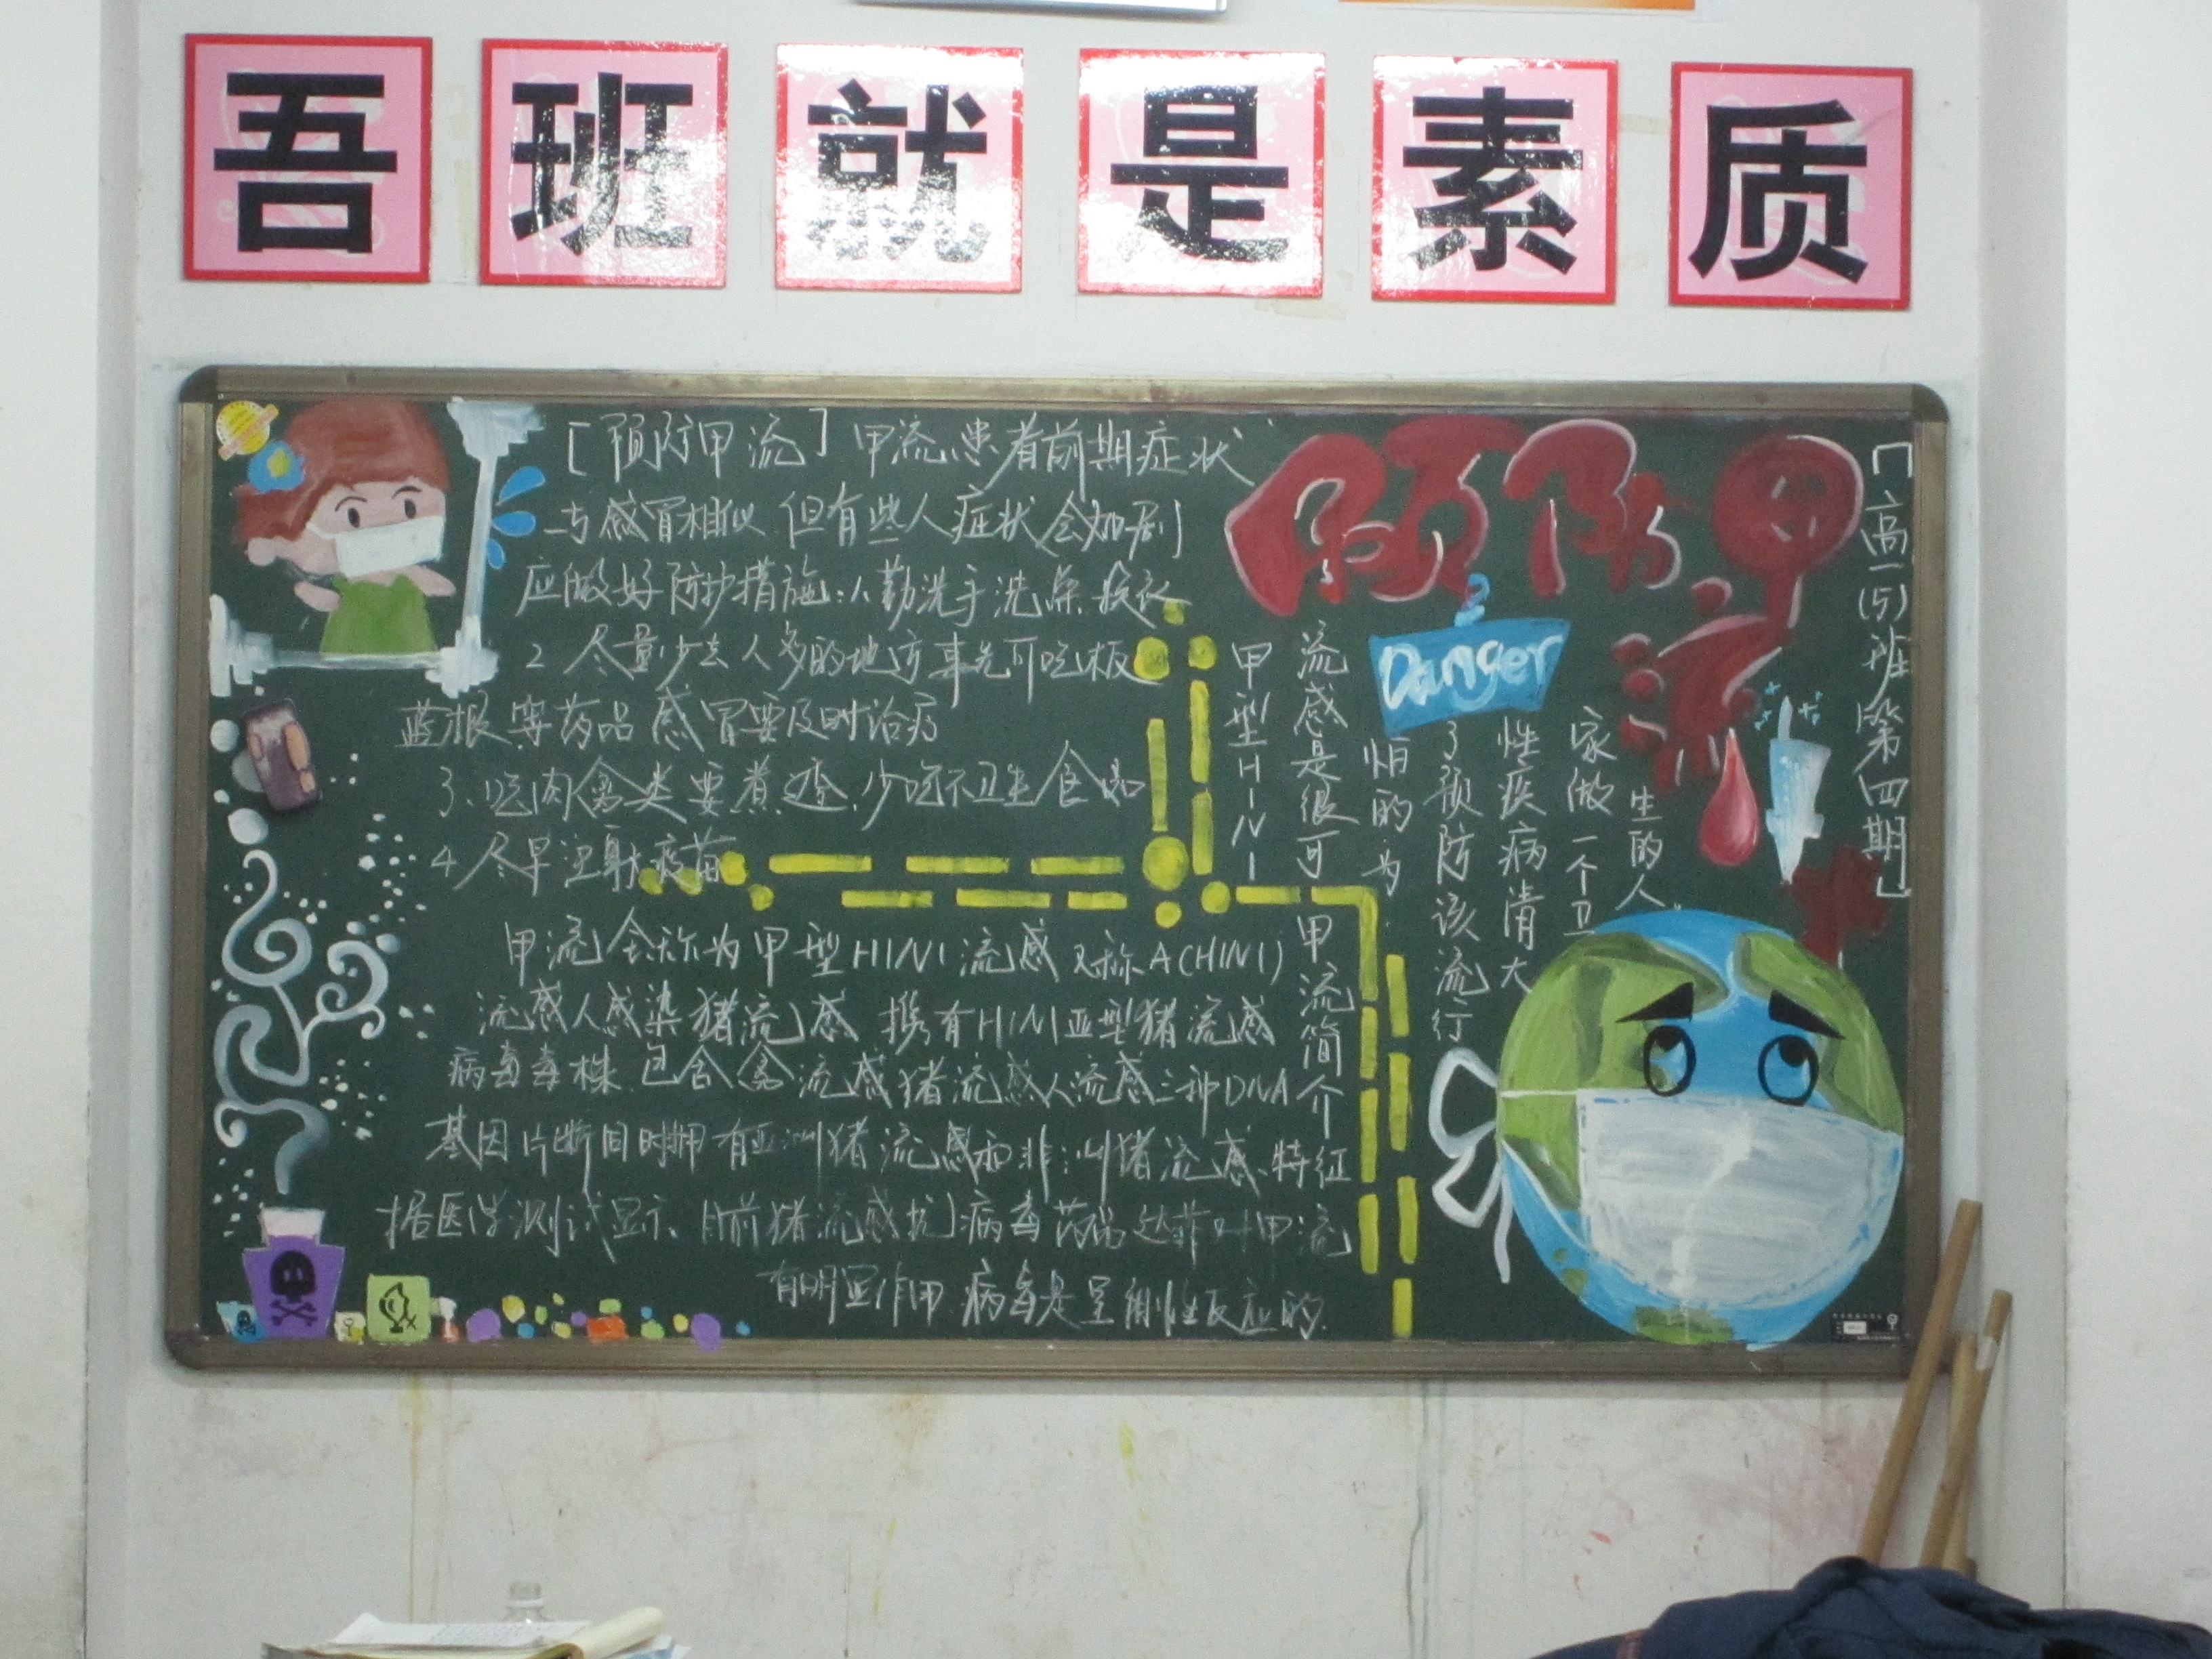 吾班就是素质
[预防甲流] 甲流患者前期症状
与感冒相似 但有些人症状会加剧
应做好防护措施:1、勤洗手洗澡 换衣
2 尽量少去人多的地方 事先可吃板
蓝根等药品 感冒要及时治疗
3、吃肉禽类要煮透、少吃不卫生食品
4、尽早注射疫苗
预防甲流
Danger
「高一(5)班第四期」
甲型H1N1
流感是很可
怕的 为
了预防该流行
性疾病 请大
家做一个卫
生的人
甲流简介
甲流全称为甲型H1N1流感 又称A(H1N1)
流感 人感染猪流感 携有H1N1亚型猪流感
病毒毒株 包含禽流感 猪流感 人流感三种DNA
基因片断 同时拥有亚洲猪流感和非洲猪流感特征
据医学测试显示、目前猪流感抗病毒药品达菲对甲流
有明显作用 病毒是呈阳性反应的.